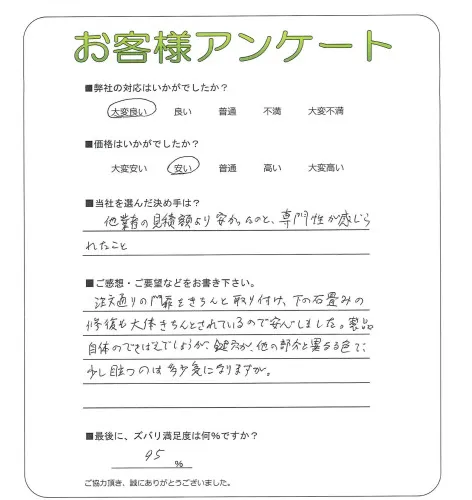 お客様アンケート
■弊社の対応はいかがでしたか?
大変良い 良い 普通 不満 大変不満
■価格はいかがでしたか?
大変安い 安い 普通 高い 大変高い
■当社を選んだ決め手は?
他業者の見積額より安かったのと、専門性が感じら
れたこと
■ご感想・ご要望などをお書き下さい。
注文通りの門扉をきちんと取り付け、下の石畳みの
修復も大体きちんとされているので安心しました。製品
自体のできばえでしょうが、錠穴が、他の部分と異なる色で、
少し目立つのは多少気になりますが。
■最後に、ズバリ満足度は何%ですか?
95 %
ご協力頂き、誠にありがとうございました。